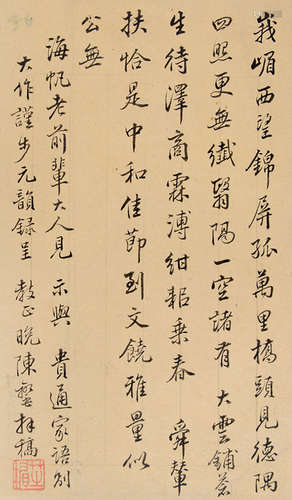 峩嵋西望錦屏孤萬里橋頭見德隅
四照更無纖翳隔一空諸有大雲鋪蒼
生待澤商霖溥紺耜乘春舜輦
扶恰是中和佳節到文饒雅量似
公無
海帆老前輩大人見示與貴通家語別
大作謹步元韻錄呈教正晚陳鏊拜稿